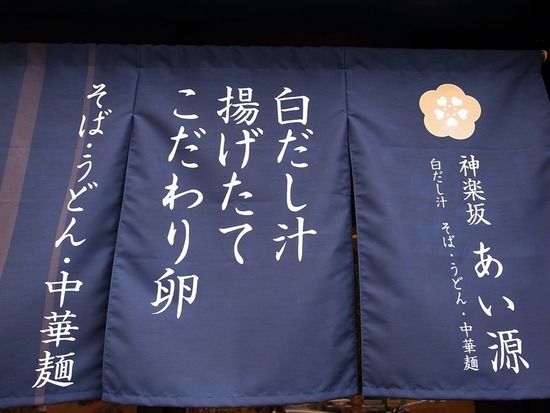 神楽坂 あい源
白だし汁 そば・うどん・中華麺
白だし汁
揚げたて
こだわり卵
そば・うどん・中華麺